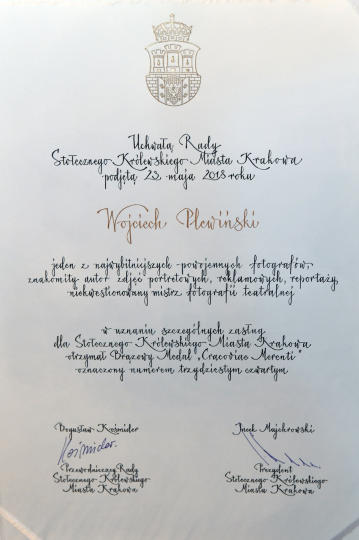 Uchwałą Rady
Stołecznego Królewskiego Miasta Krakowa
podjętą 23 maja 2018 roku
Wojciech Plewiński
jeden z najwybitniejszych powojennych fotografów,
znakomity autor zdjęć portretowych, reklamowych, reportaży,
niekwestionowany mistrz fotografii teatralnej
w uznaniu szczególnych zasług
dla Stołecznego Królewskiego Miasta Krakowa
otrzymał Brązowy Medal „Cracoviae Merenti"
oznaczony numerem trzydziestym czwartym
Bogusław Kośmider
Przewodniczący Rady
Stołecznego Królewskiego
Miasta Krakowa
Jacek Majchrowski
Prezydent
Stołecznego Królewskiego
Miasta Krakowa